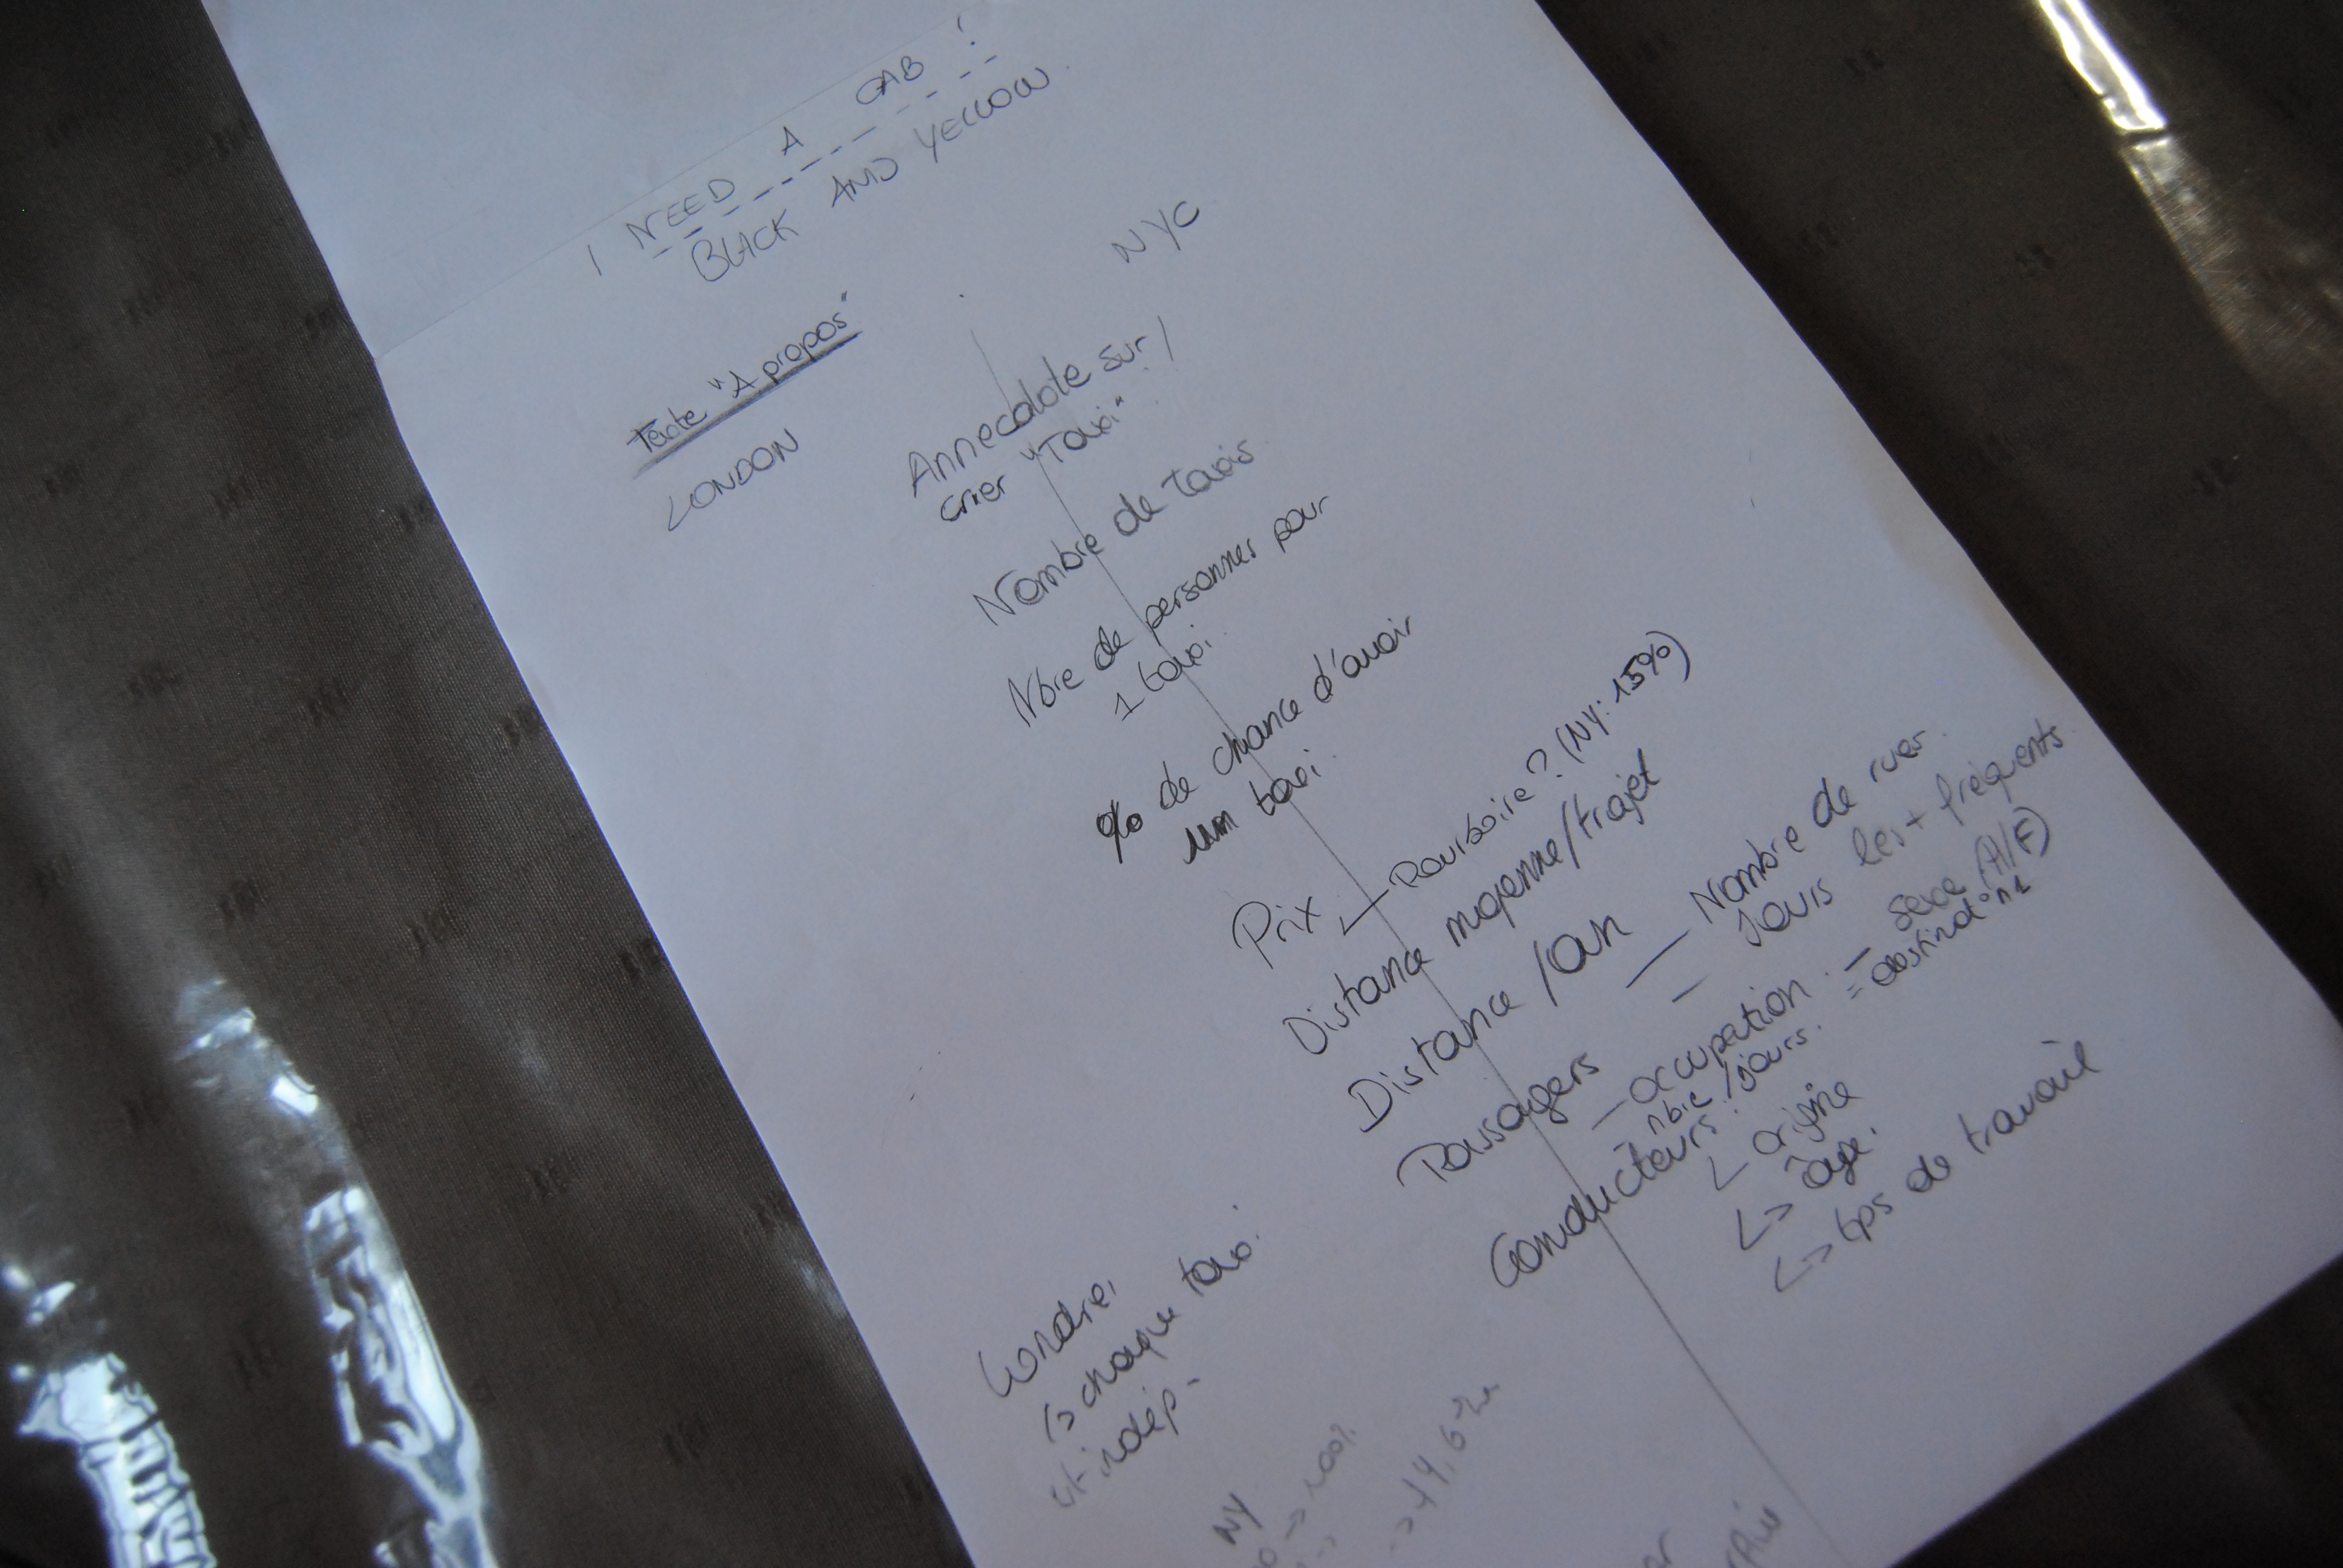 I NEED A CAB !
BLACK AND YELLOW
Texte "A propos"
LONDON
NYC
Annecdote sur
crier "Taxi"
Nombre de taxis
Nbre de personnes pour
1 taxi.
% de chance d'avoir
un taxi.
Prix
Pourboire ? (NY: 15%)
Distance moyenne/trajet
Distance /an
— Nombre de rues.
— Jours les + fréquents.
Passagers
— occupation.
nbre / jours.
— sexe (H/F)
= destinat° n1
Conducteurs
↳ origine
↳ âge.
↳ tps de travail
Londres
↳ chaque taxi
est indép.
NY
→ 100%
→ 14,6%